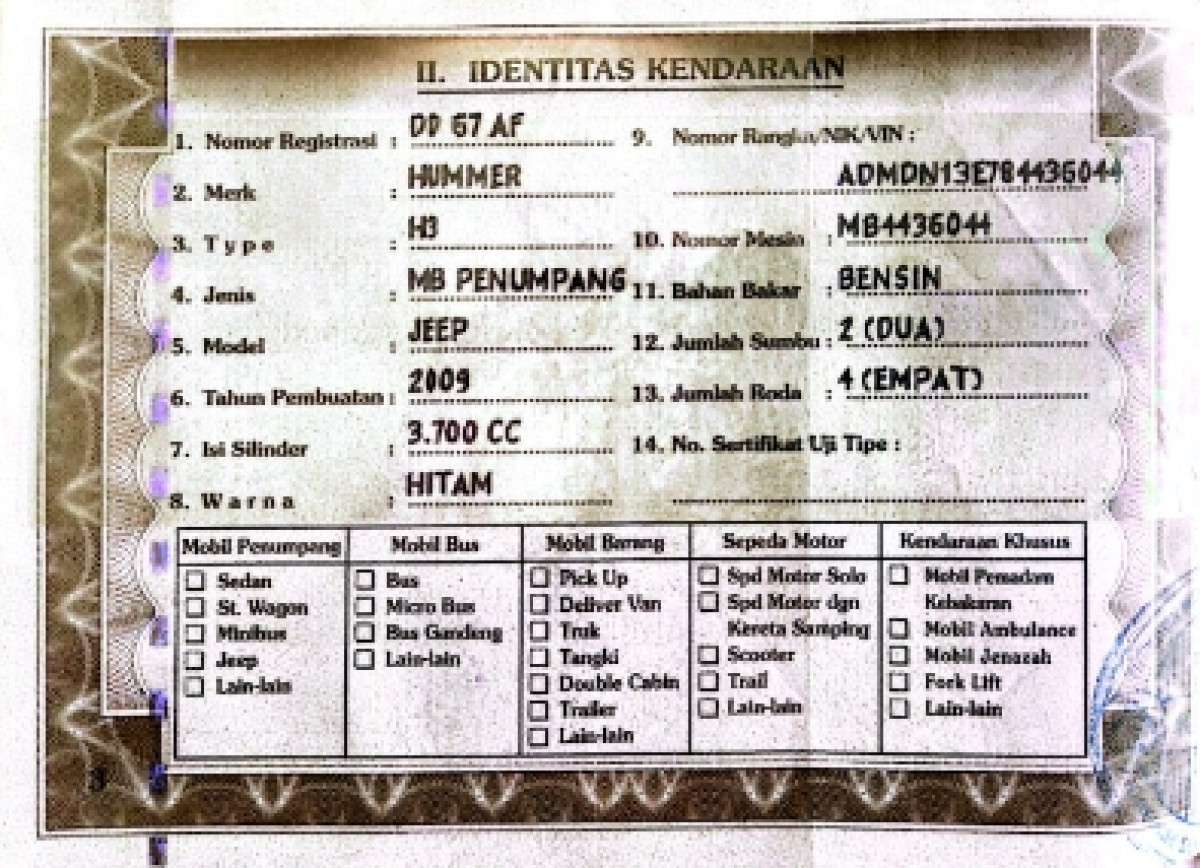 II. IDENTITAS KENDARAAN
1. Nomor Registrasi : DD 67 AF
2. Merk : HUMMER
3. Type : H3
4. Jenis : MB PENUMPANG
5. Model : JEEP
6. Tahun Pembuatan : 2009
7. Isi Silinder : 3.700 CC
8. Warna : HITAM
9. Nomor Rangka/NIK/VIN :
ADMDN13E784436044
10. Nomor Mesin : MB4436044
11. Bahan Bakar : BENSIN
12. Jumlah Sumbu : 2 (DUA)
13. Jumlah Roda : 4 (EMPAT)
14. No. Sertifikat Uji Tipe :
Mobil Penumpang
Sedan
St. Wagon
Minibus
Jeep
Lain-lain
Mobil Bus
Bus
Micro Bus
Bus Gandeng
Lain-lain
Mobil Barang
Pick Up
Deliver Van
Truk
Tangki
Double Cabin
Trailer
Lain-lain
Sepeda Motor
Spd Motor Solo
Spd Motor dgn
Kereta Samping
Scooter
Trail
Lain-lain
Kendaraan Khusus
Mobil Pemadam
Kebakaran
Mobil Ambulance
Mobil Jenazah
Fork Lift
Lain-lain
3